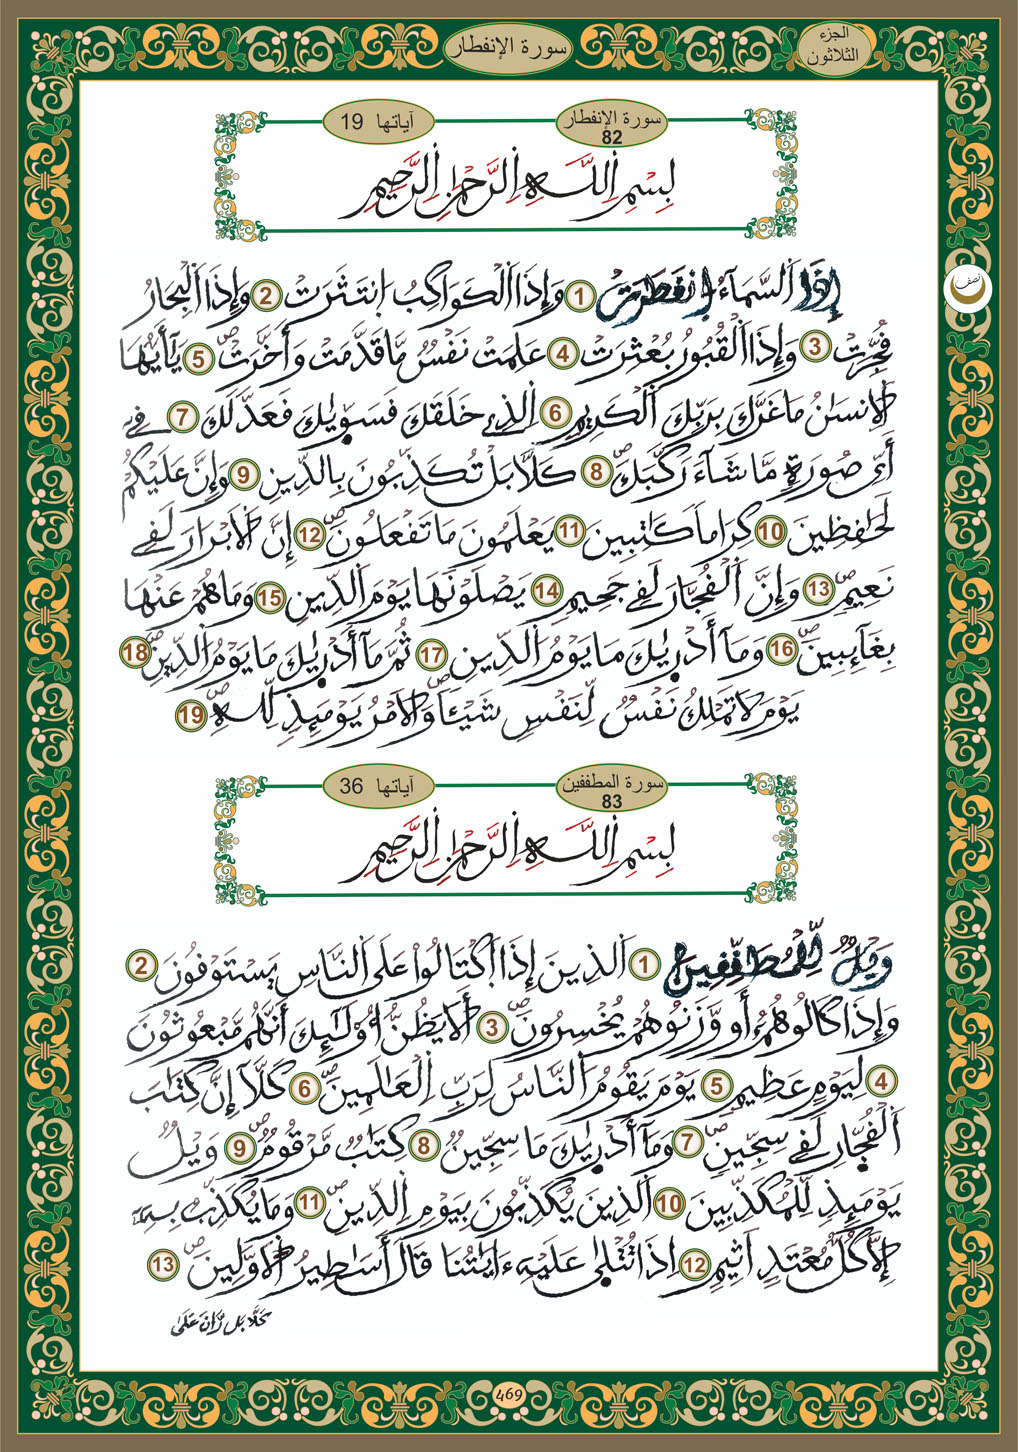 الجزء
الثلاثون
سورة الإنفطار
سورة الإنفطار
82
آياتها 19
بِسْمِ اِ۬للَّهِ اِ۬لرَّحْمَٰنِ اِ۬لرَّحِيمِ
نصف
إِذَا اَ۬لسَّمَآءُ اُ۪نفَطَرَتْ 1 وَإِذَا اَ۬لْكَوَاكِبُ اُ۪نتَثَرَتْ 2 وَإِذَا اَ۬لْبِحَارُ
فُجِّرَتْ 3 وَإِذَا اَ۬لْقُبُورُ بُعْثِرَتْ 4 عَلِمَتْ نَفْسٌ مَّا قَدَّمَتْ وَأَخَّرَتْ 5 يَٰٓأَيُّهَا
اَ۬لِانسَٰنُ مَا غَرَّكَ بِرَبِّكَ اَ۬لْكَرِيمِ 6 اِ۬لذِے خَلَقَكَ فَسَوّ۪يٰكَ فَعَدَّلَكَ 7 فِے
أَيِّ صُورَةٍ مَّا شَآءَ رَكَّبَكَ 8 كَلَّا بَلْ تُكَذِّبُونَ بِالدِّينِ 9 وَإِنَّ عَلَيْكُمْ
لَحَٰفِظِينَ 10 كِرَاماً كَٰتِبِينَ 11 يَعْلَمُونَ مَا تَفْعَلُونَ 12 إِنَّ اَ۬لَابْرَارَ لَفِے
نَعِيمٍ 13 وَإِنَّ اَ۬لْفُجَّارَ لَفِے جَحِيمٍ 14 يَصْلَوْنَهَا يَوْمَ اَ۬لدِّينِ 15 وَمَا هُمْ عَنْهَا
بِغَآئِبِينَ 16 وَمَآ أَدْر۪يٰكَ مَا يَوْمُ اُ۬لدِّينِ 17 ثُمَّ مَآ أَدْر۪يٰكَ مَا يَوْمُ اُ۬لدِّينِ 18
يَوْمَ لَا تَمْلِكُ نَفْسٌ لِّنَفْسٍ شَيْـٔاً وَالَامْرُ يَوْمَئِذٍ لِّلهِ 19
سورة المطففين
83
آياتها 36
بِسْمِ اِ۬للَّهِ اِ۬لرَّحْمَٰنِ اِ۬لرَّحِيمِ
وَيْلٌ لِّلْمُطَفِّفِينَ 1 اَ۬لذِينَ إِذَا اَ۪كْتَالُواْ عَلَى اَ۬لنَّاسِ يَسْتَوْفُونَ 2
وَإِذَا كَالُوهُمُۥٓ أَو وَّزَنُوهُمْ يُخْسِرُونَ 3 أَلَا يَظُنُّ أُوْلَٰٓئِكَ أَنَّهُم مَّبْعُوثُونَ
4 لِيَوْمٍ عَظِيمٍ 5 يَوْمَ يَقُومُ اُ۬لنَّاسُ لِرَبِّ اِ۬لْعَٰلَمِينَ 6 كَلَّآ إِنَّ كِتَٰبَ
اَ۬لْفُجَّارِ لَفِے سِجِّينٍ 7 وَمَآ أَدْر۪يٰكَ مَا سِجِّينٌ 8 كِتَٰبٌ مَّرْقُومٌ 9 وَيْلٌ
يَوْمَئِذٍ لِّلْمُكَذِّبِينَ 10 اَ۬لذِينَ يُكَذِّبُونَ بِيَوْمِ اِ۬لدِّينِ 11 وَمَا يُكَذِّبُ بِهِۦٓ
إِلَّا كُلُّ مُعْتَدٍ اَثِيمٍ 12 اِذَا تُتْل۪يٰ عَلَيْهِ ءَايَٰتُنَا قَالَ أَسَٰطِيرُ اُ۬لَاوَّلِينَ 13
كَلَّا بَل رَّانَ عَلَىٰ
469